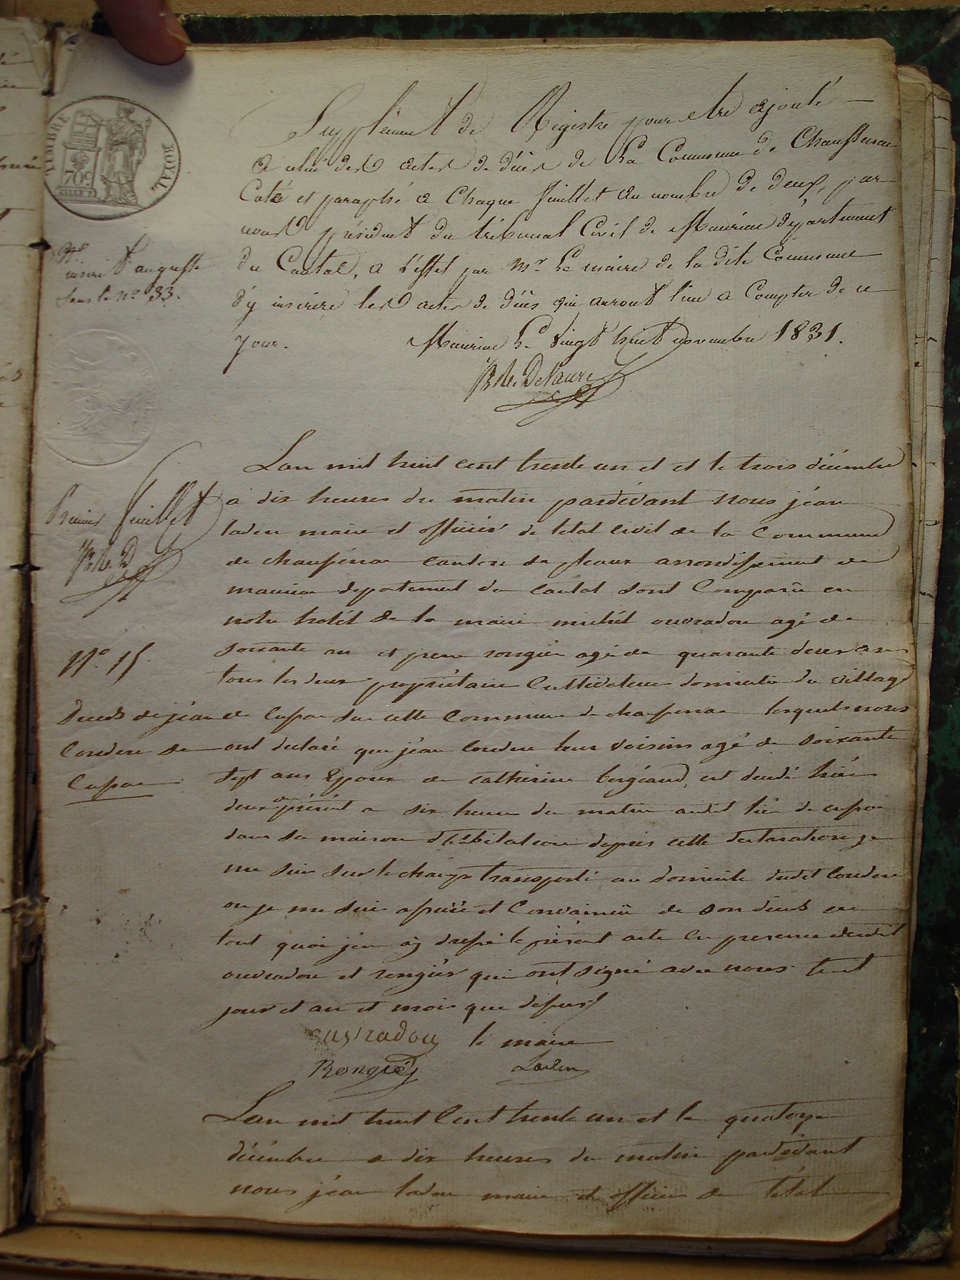 TIMBRE ROYAL
70c
Supplément de Registre pour etre ajouté
a celui des actes de décès de La Commune de Chaussenac
Coté et paraphé a Chaque feuillet au nombre de deux, par
nous président du tribunal Civil de Mauriac département
du Cantal, a l'effet par Mr Le maire de la dite Commune
d'y inscrire les actes de décès qui auront lieu a Compter de ce
jour. Mauriac Le vingt huit novembre 1831.
sous le no 33.
Premier feuillet
Lan mil huit cent trente un et et le trois décembre
a dix heures du matin pardevant nous jéan
maire et officier de létat civil de la Commune
de chausenac canton de pleaux arrondissement de
mauriac departement du cantal sont Comparu en
notre hotél de la mairie michél ouvradou agé de
soixante an et pierre rongiér agé de quarante deux ans
tous les deux propriétaire Cultivateur domicilié du village
de Cussac sur cette Commune de chausenac lesquels nous
ont declaré que jéan Condere leur voisin agé de soixante
sept ans Epoux de catherine est decedé hiér
deux du présent a six heure du matin audit liéu de cussac
dans sa maison d'abitation depuis cette declaration je
me suis sur le champ transporté au domicile dudit Condere
ou je me suis assuré et Convaincu de son décès en
tout quoi jén ay dressé le présent acte En presence dudit
ouvradou et rongiér qui ont signé avec nous le dit
jour et an et mois que dessus
No 15
Deces de jéan
Condere de
Cussac
ouvradou le maire
Rongiér
Lan mil huit Cent trente un et le quatorze
décembre a dix heures du matin pardevant
nous jéan maire et officier de létat